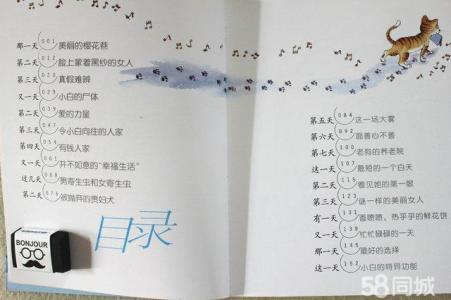 那一天 001 美丽的樱花巷
第二天 012 脸上蒙着黑纱的女人
第三天 020 真假难辨
又一天 029 小白的尸体
第二天 039 爱的力量
第三天 047 令小白向往的人家
第四天 054 有钱人家
又一天 061 并不如意的“幸福生活”
这几天 068 男寄生虫和女寄生虫
第二天 076 被抛弃的贵妇犬
目录
BONJOUR
第五天 084 这一场大雾
第六天 092 面善心不善
第七天 100 老狗的养老院
这一天 107 最短的一个白天
第二天 115 看见她的第一眼
第三天 123 谜一样的美丽女人
有一天 131 香喷喷、热乎乎的鲜花饼
又一天 138 忙忙碌碌的一天
那一天 145 最好的选择
这一天 152 小白的特异功能
58同城